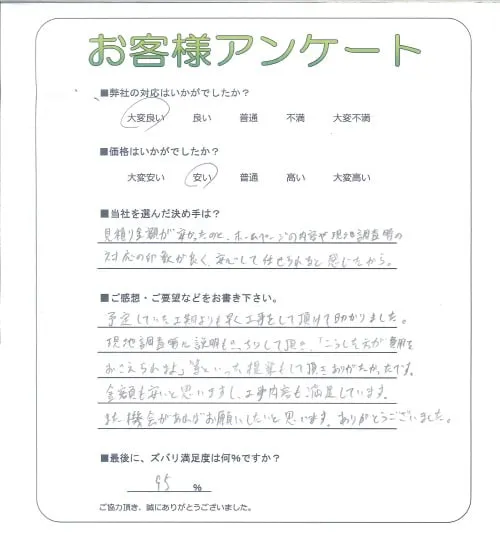 お客様アンケート
■弊社の対応はいかがでしたか？
大変良い 良い 普通 不満 大変不満
■価格はいかがでしたか？
大変安い 安い 普通 高い 大変高い
■当社を選んだ決め手は？
見積り金額が安かったのと、ホームページの内容や現地調査時の
対応の印象が良く、安心して任せられると感じたから。
■ご感想・ご要望などをお書き下さい。
予定していた工期よりも早く工事をして頂けて助かりました。
現地調査時に説明もしっかりして頂き、「こうした方が費用を
おさえられるよ」等といった提案もして頂きありがたかったです。
金額も安いと思いますし、工事内容も満足しています。
また機会があればお願いしたいと思います。ありがとうございました。
■最後に、ズバリ満足度は何%ですか？
95 %
ご協力頂き、誠にありがとうございました。